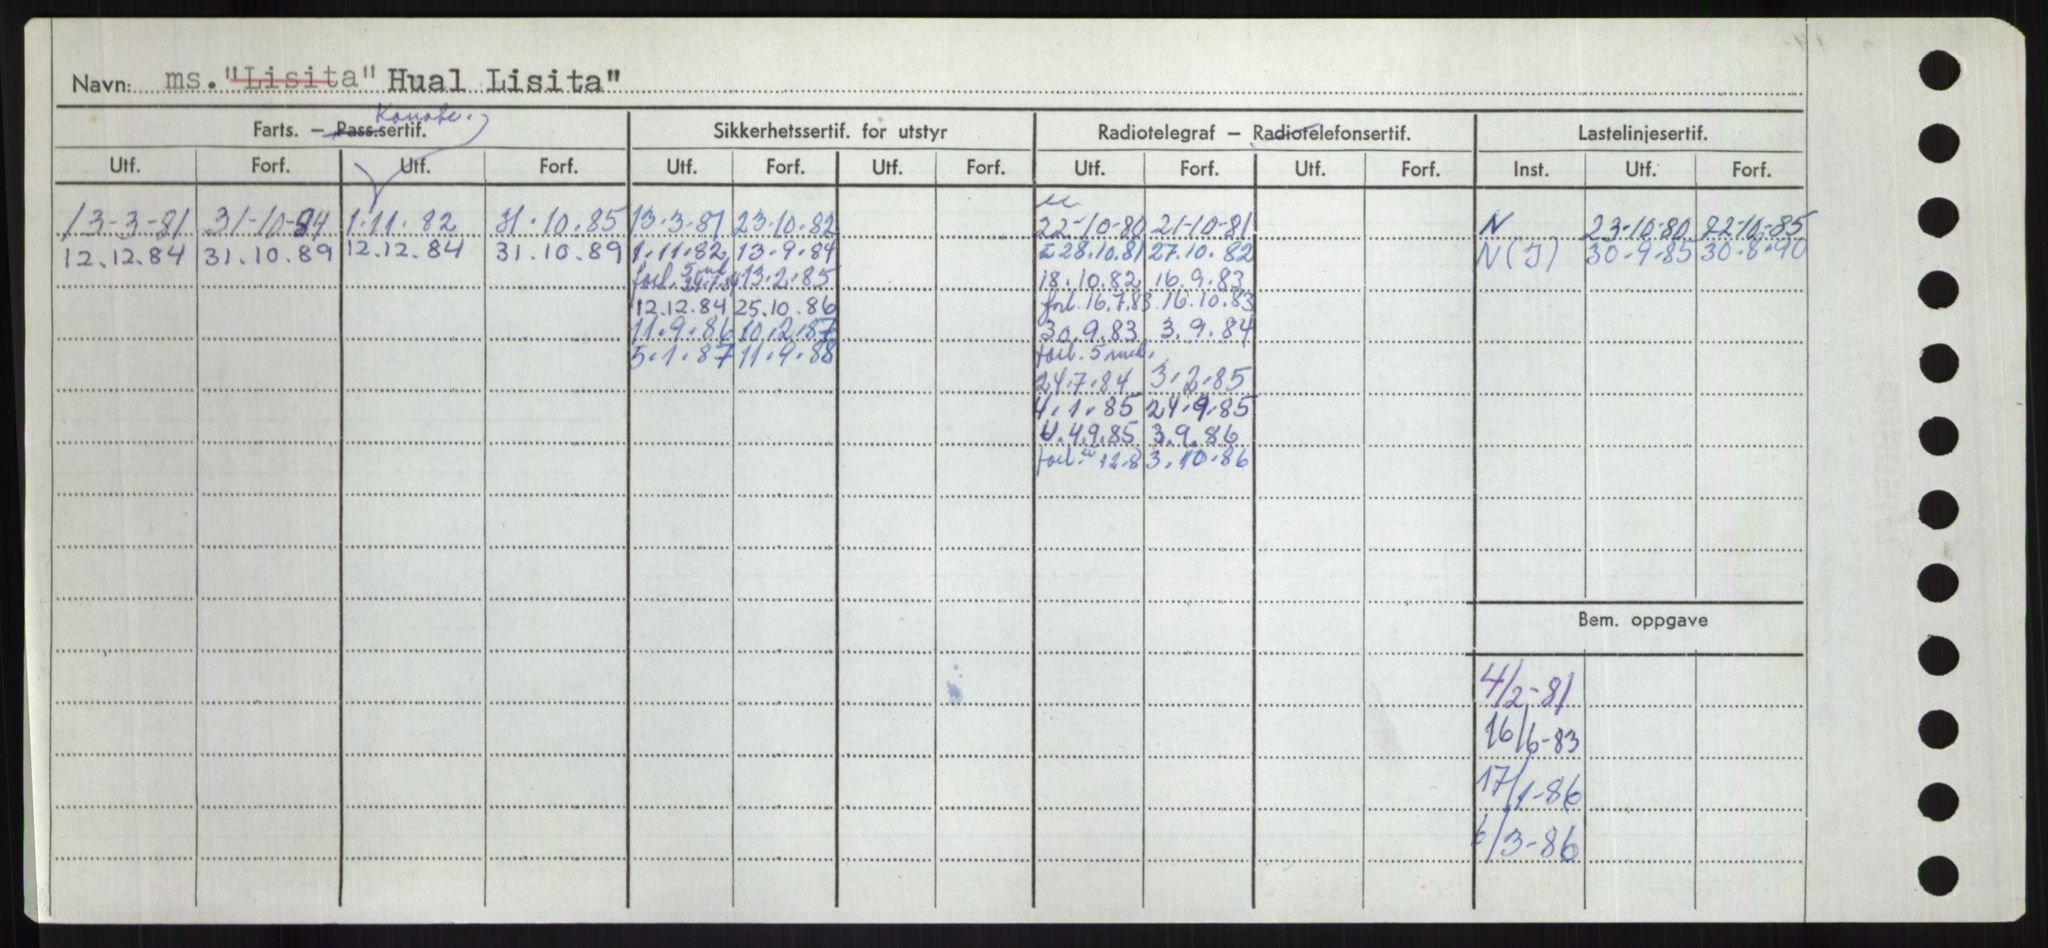 Navn: ms. "Lisita" Hual Lisita"
Konstr.
Farts. – Pass.sertif. Sikkerhetssertif. for utstyr Radiotelegraf – Radiotelefonsertif. Lastelinjesertif.
Utf. Forf. Utf. Forf. Utf. Forf. Utf. Forf. Utf. Forf. Utf. Forf. Inst. Utf. Forf.
13-3-81 31-10-84 1.11.82 31.10.85 13.3.81 23.10.82 22-10-80 21-10-81 N 23.10.80 22.10.85
12.12.84 31.10.89 12.12.84 31.10.89 1.11.82 13.9.84 28.10.81 27.10.82 N(I) 30.9.85 30.8.90
forl. 5 md. 24.7.84 13.2.85 18.10.82 16.9.83
12.12.84 25.10.86 forl. 16.7.83 16.10.83
11.9.86 10.2.87 30.9.83 3.9.84
5.1.87 11.9.88 forl. 5 md.
24.7.84 3.2.85
4.1.85 24.9.85
4.9.85 3.9.86
forl. 12.8 3.10.86
Bem. oppgave
4/2-81
16/6-83
17/1-86
6/3-86